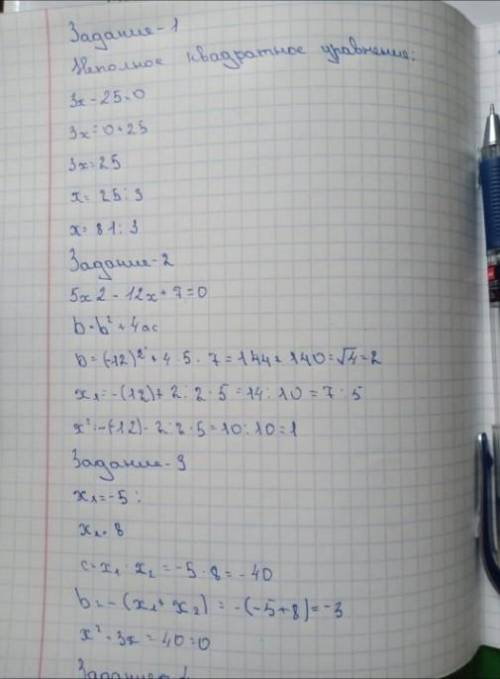 Задание-1
Неполное квадратное уравнение:
3x - 25 = 0
3x = 0 + 25
3x = 25
x = 25 : 3
x = 81 : 3
Задание-2
5x2 - 12x + 7 = 0
b = b² + 4ac
b = (-12)² + 4 · 5 · 7 = 144 = 140 = √4 = 2
x₁ = -(12) + 2 : 2 · 5 = 14 : 10 = 7 : 5
x² = -(12) - 2 : 2 · 5 = 10 : 10 = 1
Задание-3
x₁ = -5 :
x₂ = 8
c = x₁ · x₂ = -5 · 8 = -40
b = -(x₁ + x₂) = -(-5+8) = -3
x² - 3x = 40 = 0